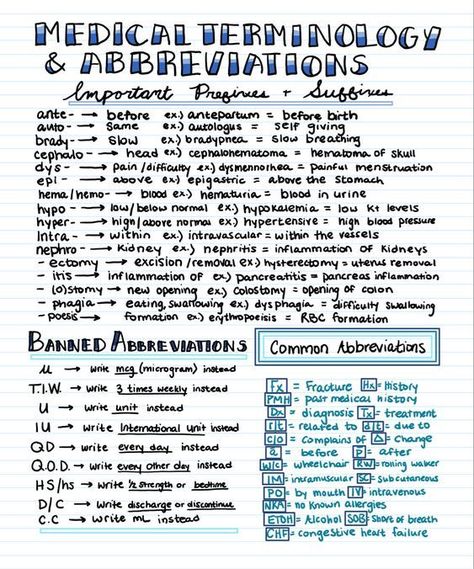 MEDICAL TERMINOLOGY
& ABBREVIATIONS
Important Prefixes + Suffixes
ante- → before ex.) antepartum = before birth
auto- → same ex.) autologus = self giving
brady- → slow ex.) bradypnea = slow breathing
cephalo- → head ex.) cephalohematoma = hematoma of skull
dys- → pain/difficulty ex.) dysmenorrhea = painful menstruation
epi- → above ex.) epigastric = above the stomach
hema/hemo- → blood ex.) hematuria = blood in urine
hypo- → low/below normal ex.) hypokalemia = low K+ levels
hyper- → high/above normal ex.) hypertensive = high blood pressure
Intra- → within ex.) intravascular = within the vessels
nephro- → kidney ex.) nephritis = inflammation of kidneys
-ectomy → excision/removal ex.) hysterectomy = uterus removal
-itis → inflammation of ex.) pancreatitis = pancreas inflammation
-(o)stomy → new opening ex.) colostomy = opening of colon
-phagia → eating, swallowing ex.) dysphagia = difficulty swallowing
-poesis → formation ex.) erythropoesis = RBC formation
BANNED ABBREVIATIONS
μ → write mcg (microgram) instead
T.I.W. → write 3 times weekly instead
U → write unit instead
IU → write International unit instead
QD → write every day instead
Q.O.D. → write every other day instead
HS/hs → write ½ strength or bedtime
D/C → write discharge or discontinue
C.C → write mL instead
Common Abbreviations
Fx = Fracture Hx = History
PMH = past medical history
Dx = diagnosis Tx = treatment
r/t = related to d/t = due to
c/o = complains of Δ = change
a = before p = after
W/c = wheelchair RW = rolling walker
IM = intramuscular SC = subcutaneous
PO = by mouth IV = intravenous
NKA = no known allergies
ETOH = Alcohol SOB = short of breath
CHF = congestive heart failure